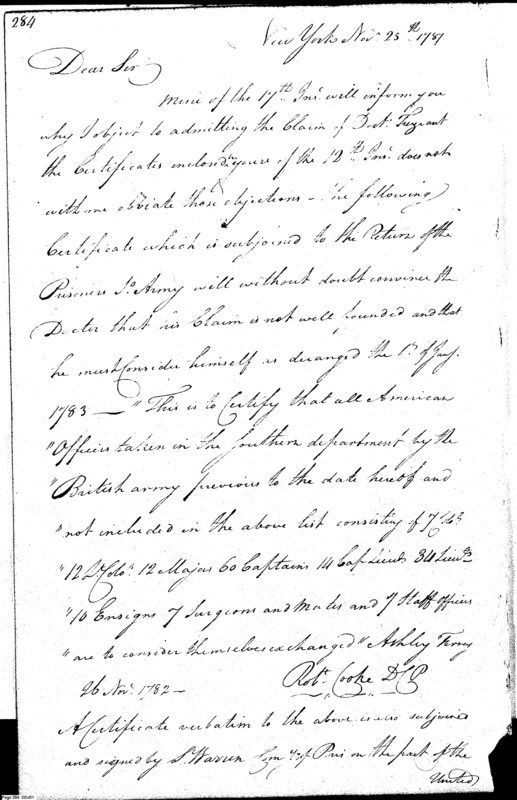 284
New York Nov. 25th 1787
Dear Sir
Mine of the 17th Ins. will inform you
why I object to admitting the Claim of Doct.
the Certificates inclosed in yours of the 12th Ins. does not
with me obviate those objections – The following
Certificate which is subjoined to the Return of the
Prisoners So. Army will without doubt convince the
Doctor that his Claim is not well founded and that
he must Consider himself as deranged the 1st of Jany.
1783 — "This is to Certify that all American
"Officers taken in the Southern department by the
"British army previous to the date hereof and
"not included in the above list consisting of 7 Cols.
"12 Lt. Colos. 12 Majors 60 Captains 14 Cap Lieuts 84 Lieuts
"10 Ensigns 7 Surgeons and Mates and 7 Staff Officers
"are to consider themselves exchanged" Ashley Ferry
26 Nov. 1782 – Robt. Cooke D C P
A Certificate verbatim to the above is also subjoined
and signed by S. Warren Com.y of Pris on the part of the
United